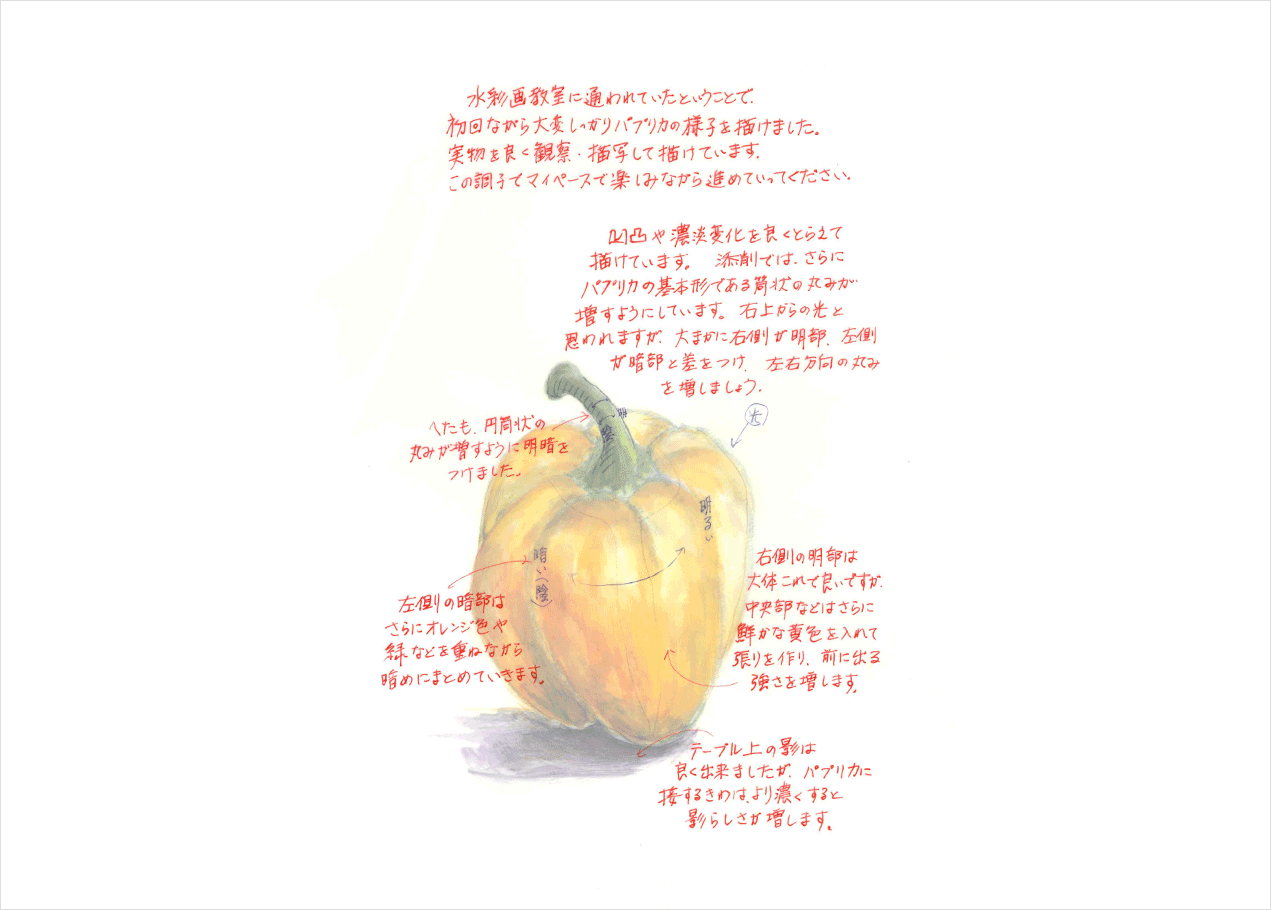 水彩画教室に通われていたということで、
初回ながら大変しっかりパプリカの様子を描けました。
実物を良く観察・描写して描けています。
この調子でマイペースで楽しみながら進めていってください。
凹凸や濃淡変化を良くとらえて
描けています。 添削では、さらに
パプリカの基本形である筒状の丸みが
増すようにしています。右上からの光と
思われますが、大まかに右側が明部、左側
が暗部と差をつけ、左右方向の丸み
を増しましょう。
光
へたも、円筒状の
丸みが増すように明暗を
つけました。
明
陰
明るい
暗い(陰)
右側の明部は
大体これで良いですが、
中央部などはさらに
鮮かな黄色を入れて
張りを作り、前に出る
強さを増します。
左側の暗部は
さらにオレンジ色や
緑などを重ねながら
暗めにまとめていきます。
テーブル上の影は
良く出来ましたが、パプリカに
接するきわは、より濃くすると
影らしさが増します。